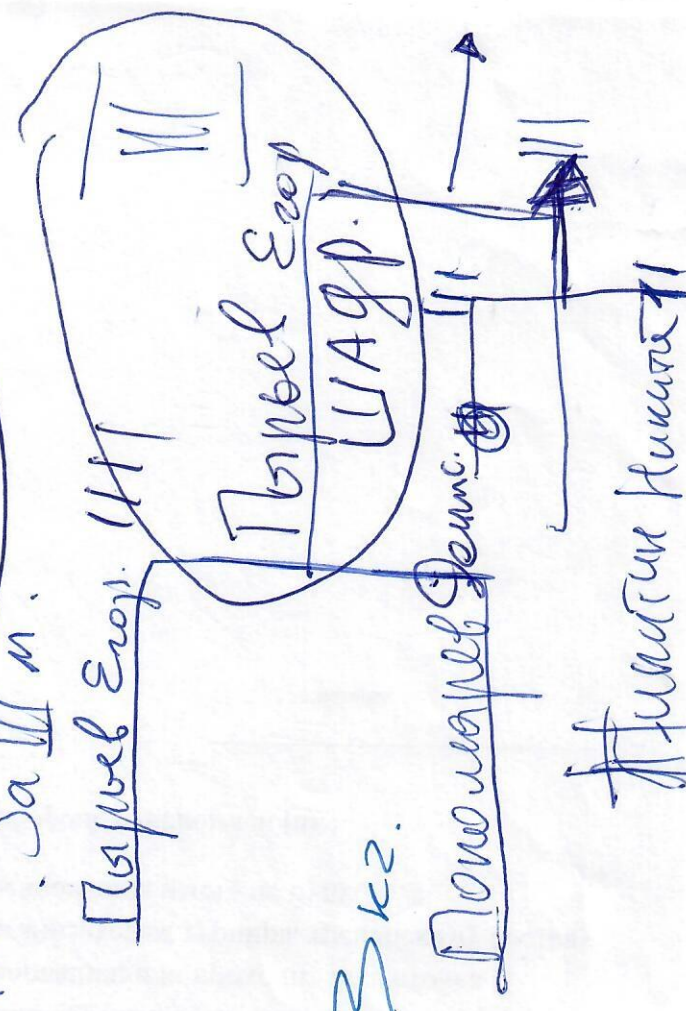 За III м.
Пырьев Егор. III
Пырьев Егор
ШАдр.
III
3 кг.
Пономарев Денис.
III
III
Никитин Никита II